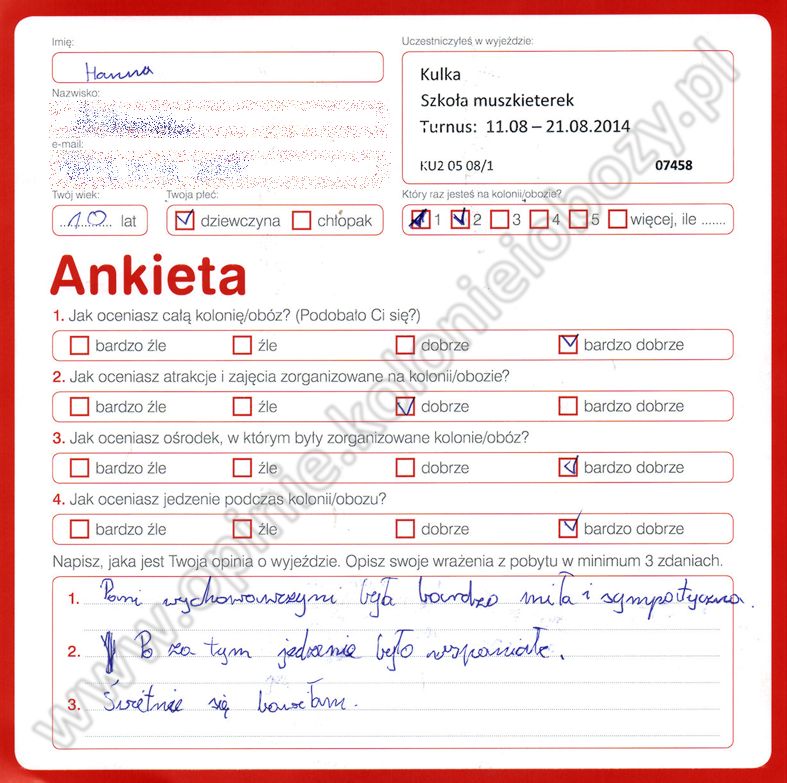 Imię:
Hanna
Uczestniczyłeś w wyjeździe:
Kulka
Szkoła muszkieterek
Turnus: 11.08 – 21.08.2014
KU2 05 08/1 07458
Nazwisko:
e-mail:
Twój wiek:
10 lat
Twoja płeć:
dziewczyna chłopak
Który raz jesteś na kolonii/obozie?
1 2 3 4 5 więcej, ile .......
Ankieta
1. Jak oceniasz całą kolonię/obóz? (Podobało Ci się?)
bardzo źle źle dobrze bardzo dobrze
2. Jak oceniasz atrakcje i zajęcia zorganizowane na kolonii/obozie?
bardzo źle źle dobrze bardzo dobrze
3. Jak oceniasz ośrodek, w którym były zorganizowane kolonie/obóz?
bardzo źle źle dobrze bardzo dobrze
4. Jak oceniasz jedzenie podczas kolonii/obozu?
bardzo źle źle dobrze bardzo dobrze
Napisz, jaka jest Twoja opinia o wyjeździe. Opisz swoje wrażenia z pobytu w minimum 3 zdaniach.
1. Pani wychowawczyni była bardzo miła i sympatyczna.
2. Po za tym jedzenie było wspaniałe.
3. Świetnie się bawiłam.
www.opinie.kolonieiobozy.pl